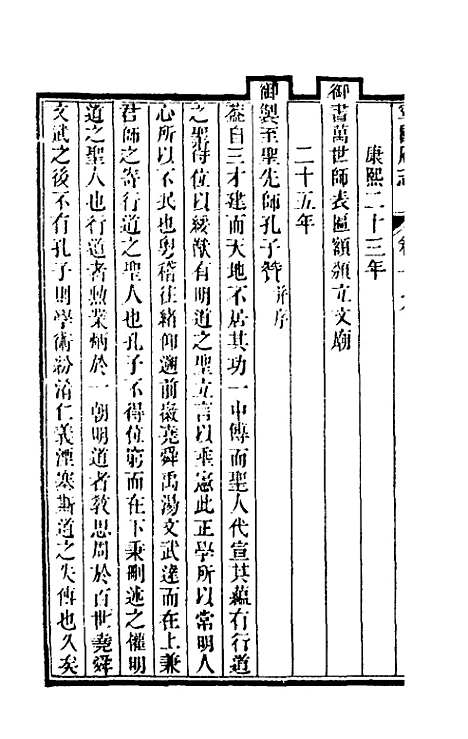 康熙二十三年
御書萬世師表匾額頒立文廟
二十五年
御製至聖先師孔子贊并序
蓋自三才建而天地不居其功一中傳而聖人代宣其蘊有行道
之聖得位以綏猷有明道之聖立言以垂憲此正學所以常明人
心所以不泯也粵稽往緒仰遡前徽堯舜禹湯文武達而在上兼
君師之寄行道之聖人也孔子不得位窮而在下秉刪述之權明
道之聖人也行道者勲業炳於一朝明道者教思周於百世堯舜
文武之後不有孔子則學術紛淆仁義湮塞斯道之失傳也久矣